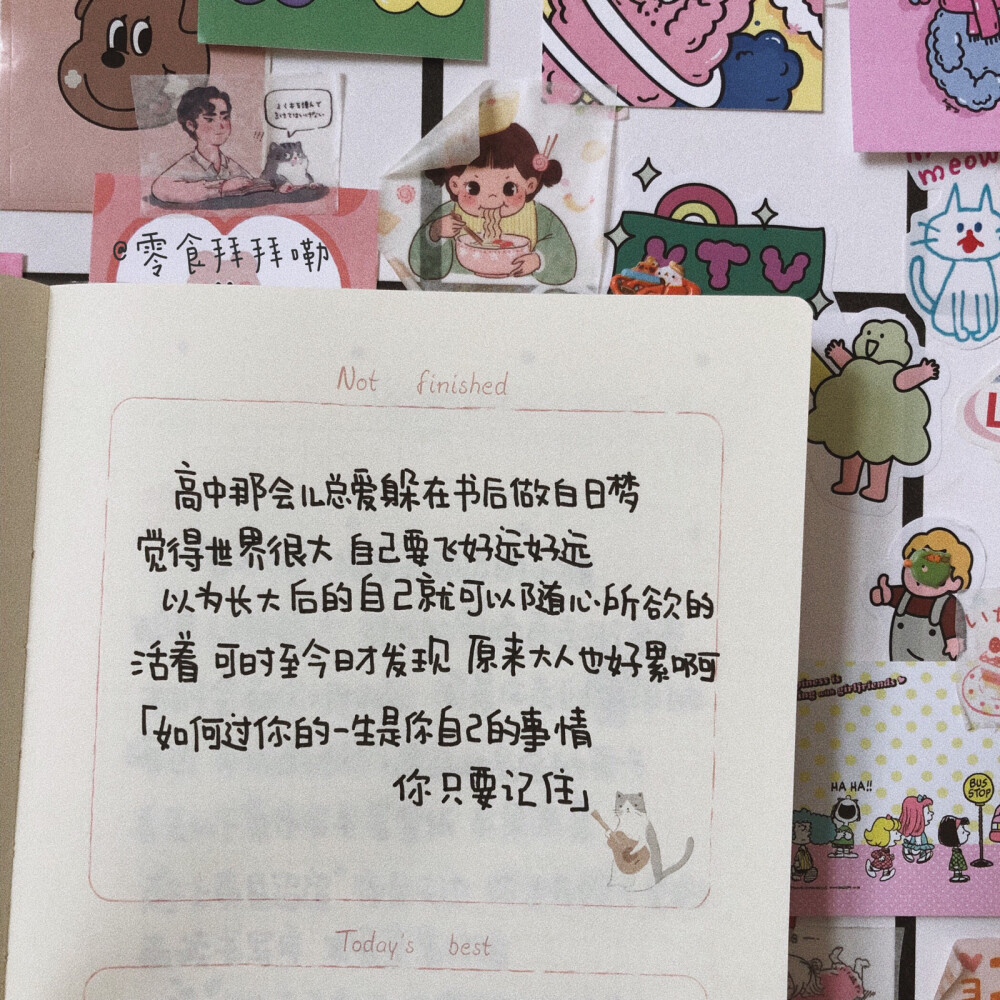 @零食拜拜嘞
KTV
meow
Not finished
高中那会儿总爱躲在书后做白日梦
觉得世界很大 自己要飞好远好远
以为长大后的自己就可以随心所欲的
活着 可时至今日才发现 原来大人也好累啊
「如何过你的一生是你自己的事情
你只要记住」
Today's best
with girlfriends
HA HA!!
BUS
STOP